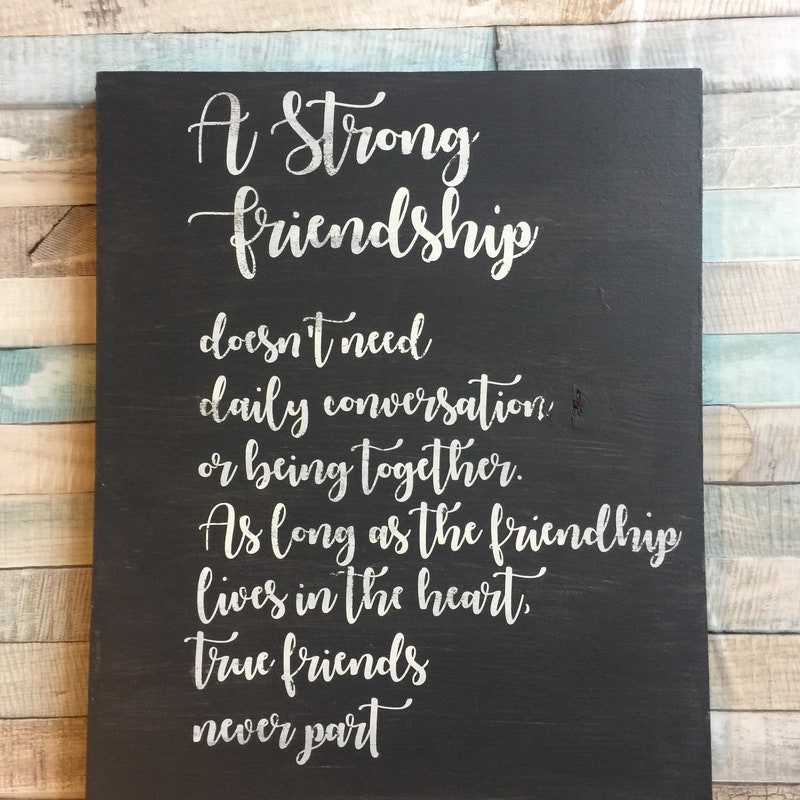 A Strong
friendship
doesn't need
daily conversation
or being together.
As long as the friendhip
lives in the heart,
true friends
never part